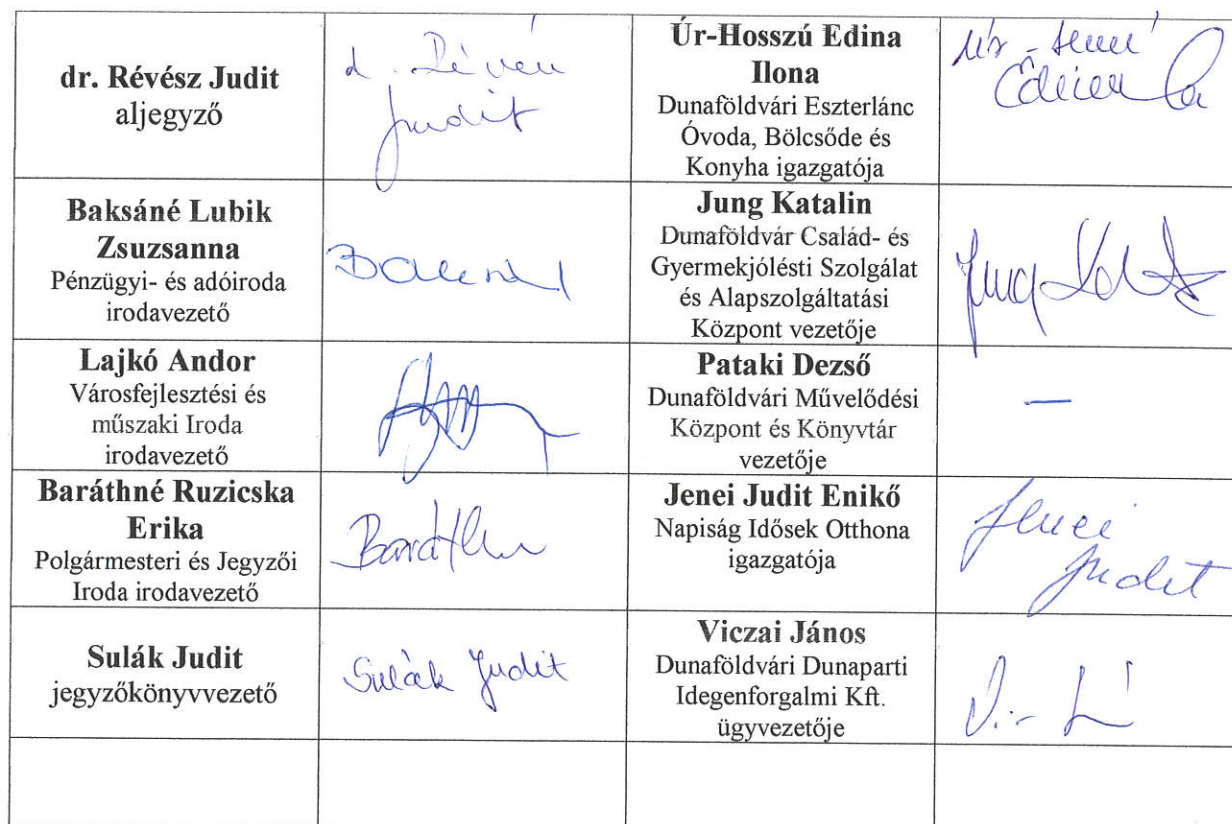 dr. Révész Judit
aljegyző
Judit
Úr-Hosszú Edina
Ilona
Dunaföldvári Eszterlánc
Óvoda, Bölcsőde és
Konyha igazgatója
Baksáné Lubik
Zsuzsanna
Pénzügyi- és adóiroda
irodavezető
Jung Katalin
Dunaföldvár Család- és
Gyermekjólésti Szolgálat
és Alapszolgáltatási
Központ vezetője
Jung
Lajkó Andor
Városfejlesztési és
műszaki Iroda
irodavezető
Pataki Dezső
Dunaföldvári Művelődési
Központ és Könyvtár
vezetője
—
Baráthné Ruzicska
Erika
Polgármesteri és Jegyzői
Iroda irodavezető
Jenei Judit Enikő
Napiság Idősek Otthona
igazgatója
Jenei
Judit
Sulák Judit
jegyzőkönyvvezető
Sulák Judit
Viczai János
Dunaföldvári Dunaparti
Idegenforgalmi Kft.
ügyvezetője